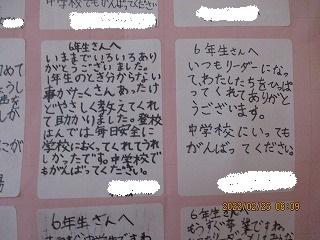 中学校でもがんばってください
6年生さんへ
いままでいろいろあり
がとうございました。
1年生のとき分からない
事がたくさんあったけ
どやさしく教えてくれ
て助かりました。登校
はんでは毎日安全に
学校におくてくれてうれ
しかったです。中学校で
もがんばってください。
6年生さんへ
いつもリーダーになっ
て、わたしたちをひっぱ
ってくれてありがと
うございます。
中学校にいっても
がんばってください。
6年生さんへ
6年生さんへ
2022/02/25 08:09